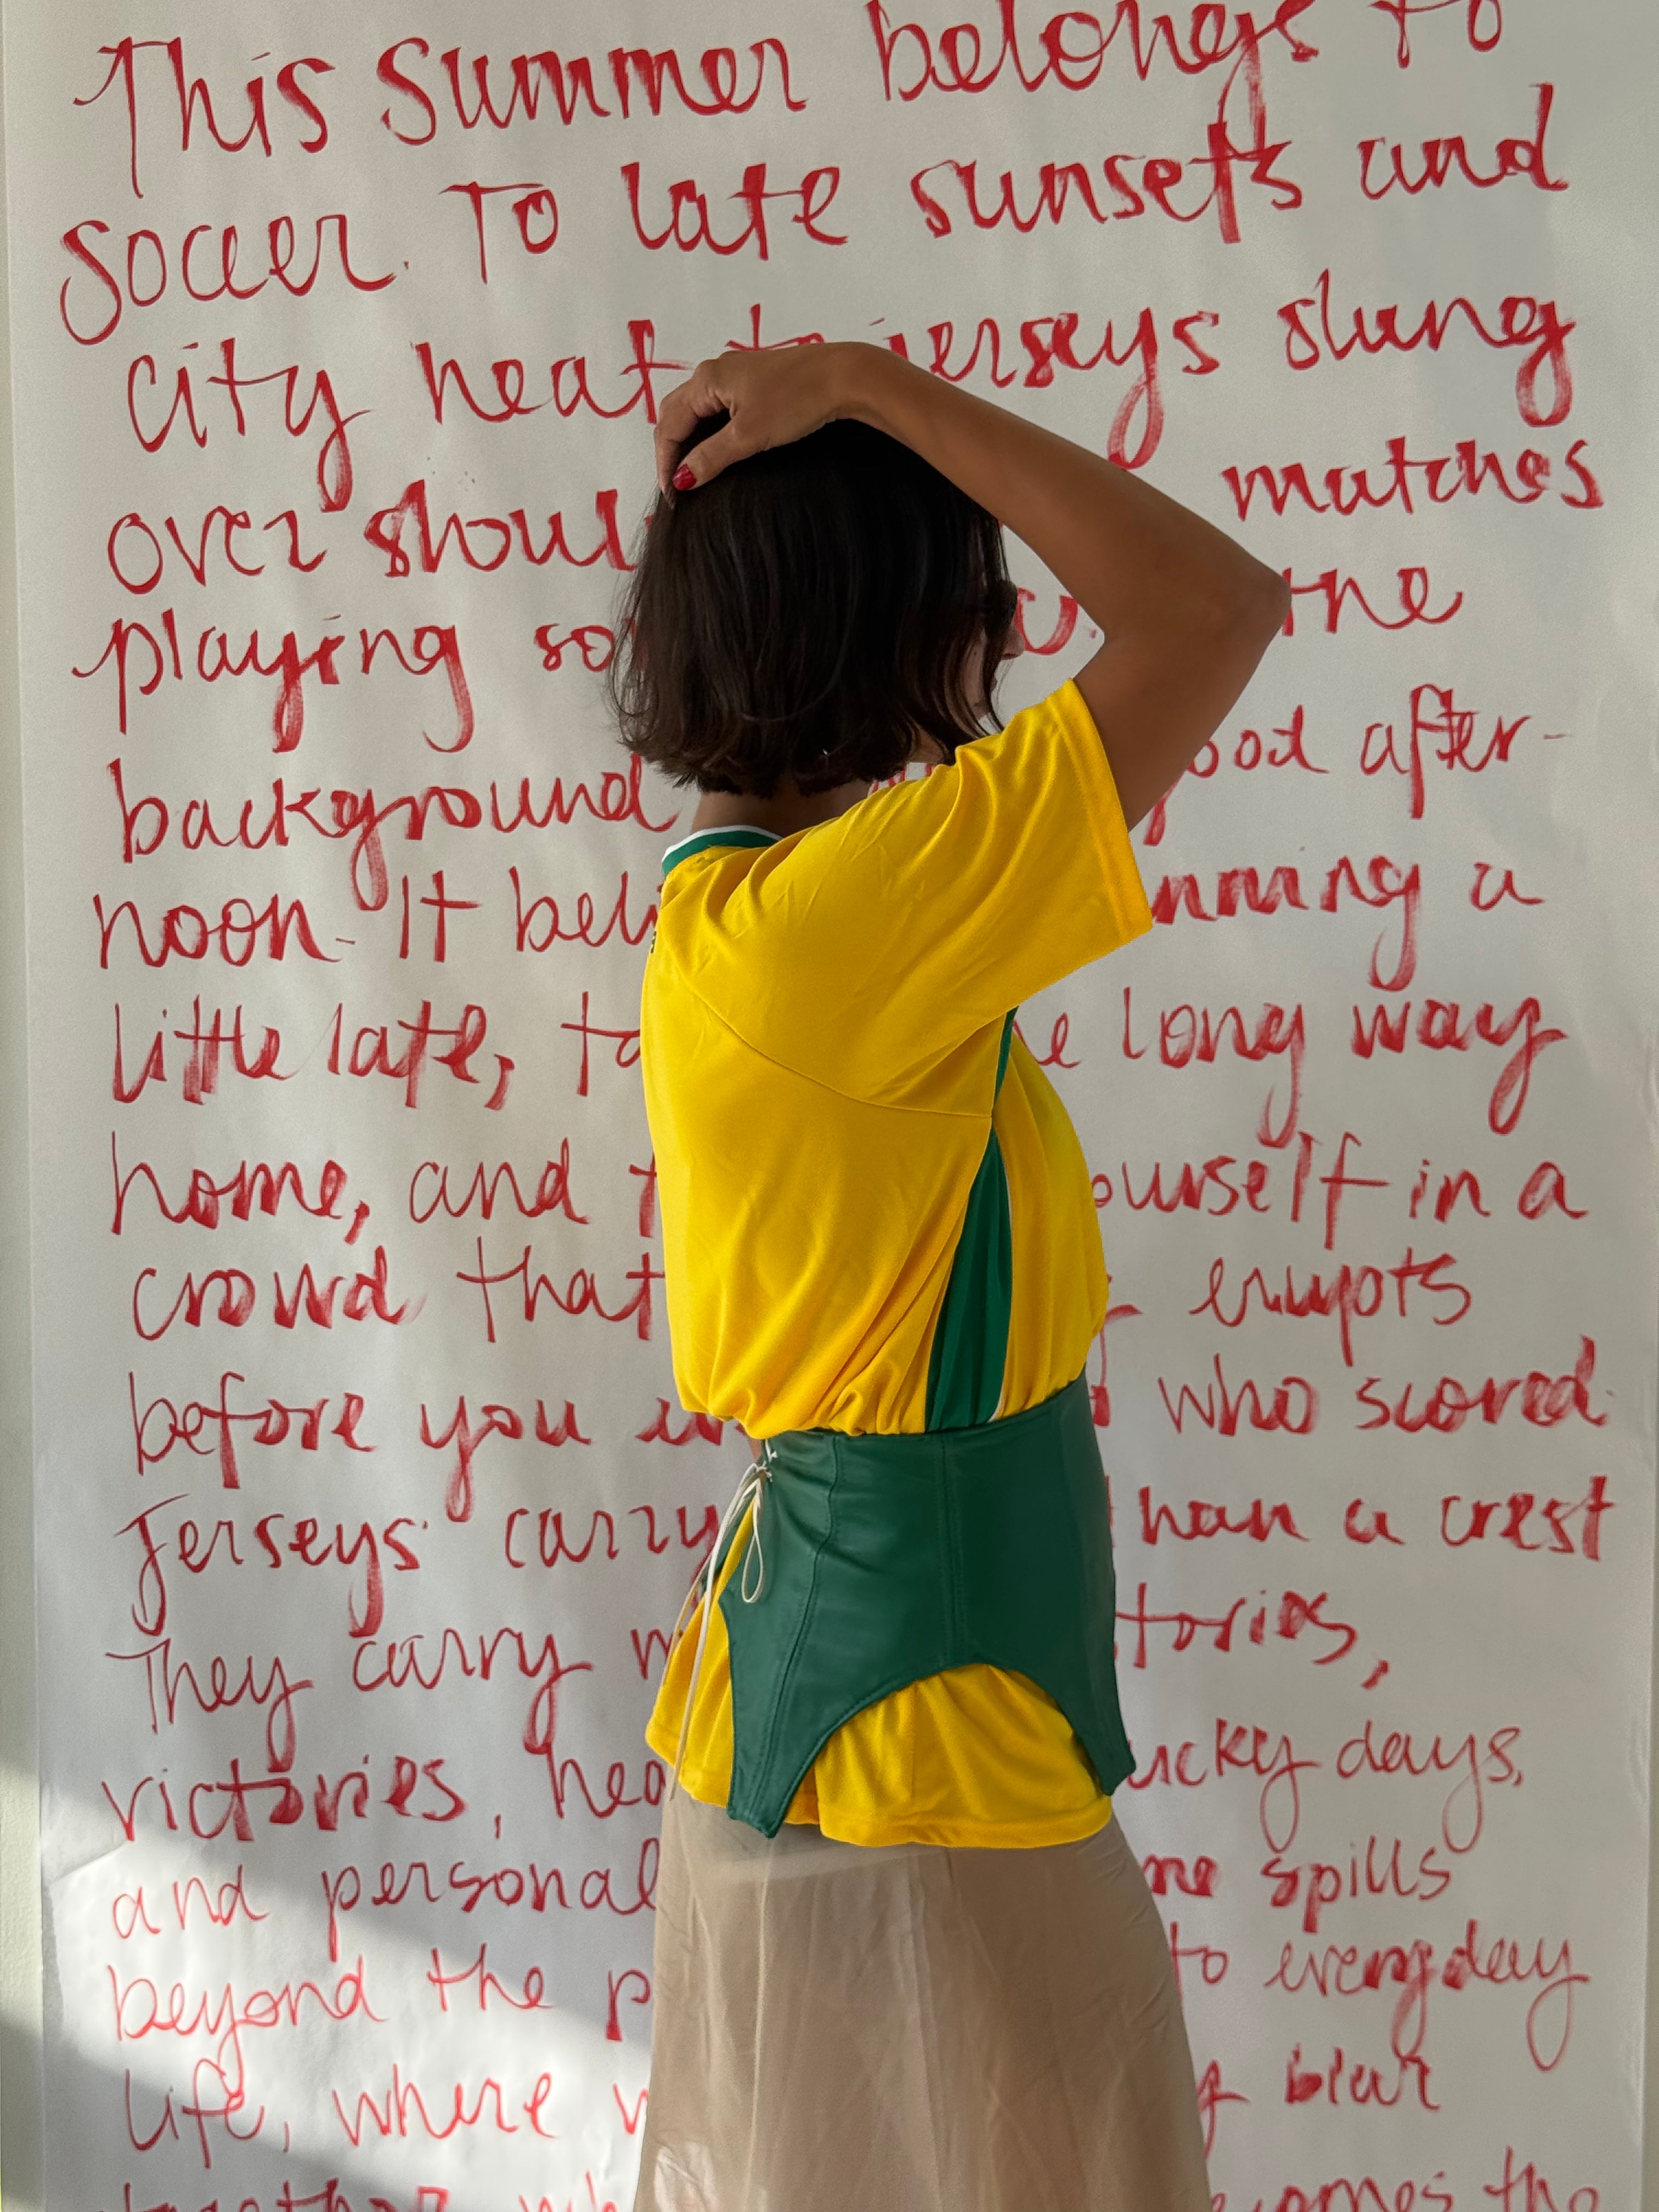 This Summer belongs to
Soccer. To late sunsets and
city heat to jerseys slung
over shoul matches
playing so the
background ood after-
noon. It bel nning a
little late, ta e long way
home, and ourself in a
crowd that erupts
before you who scored.
Jerseys carry han a crest
They carry tories,
victories, hea ucky days,
and personal me spills
beyond the p to everyday
life, where blur
together, wh comes the